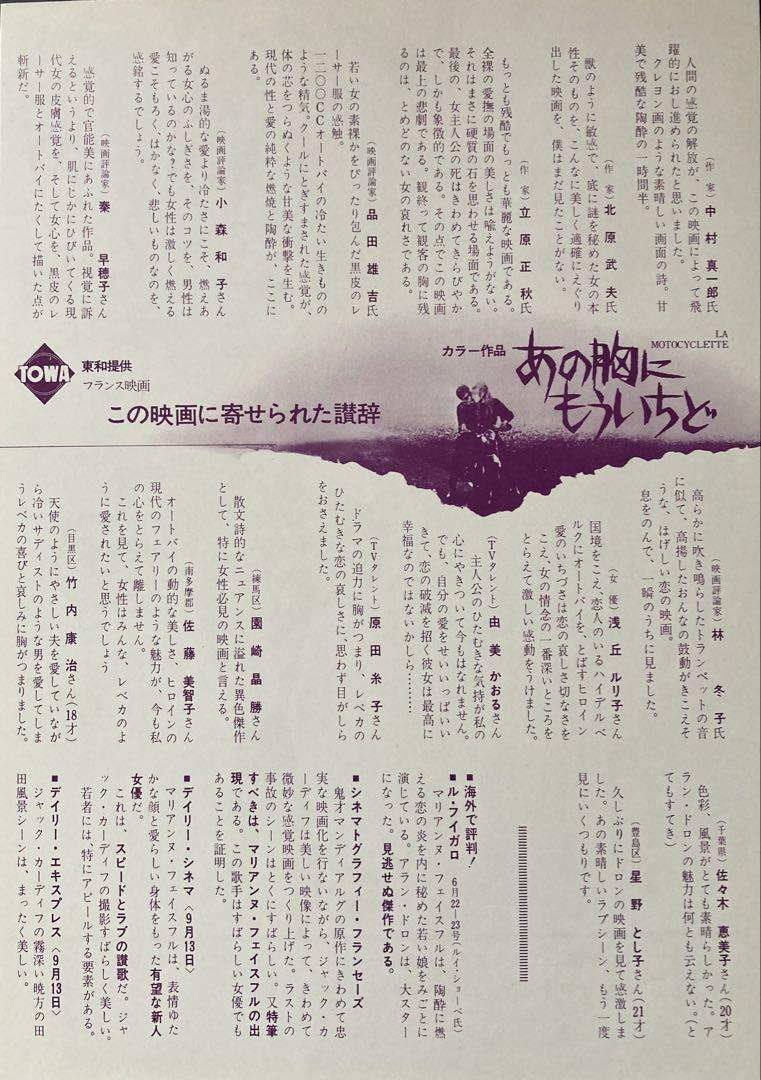 LA
MOTOCYCLETTE
カラー作品
あの胸に
もういちど
TOWA
東和提供
フランス映画
この映画に寄せられた讃辞
(作 家) 中 村 真一郎氏
人間の感覚の解放が、この映画によって飛
躍的におし進められたと思いました。
クレヨン画のような素晴しい画面の詩。甘
美で残酷な陶酔の一時間半。
(作 家) 北 原 武 夫氏
獣のように敏感で、底に謎を秘めた女の本
性そのものを、こんなに美しく適確にえぐり
出した映画を、僕はまだ見たことがない。
(作 家) 立 原 正 秋氏
もっとも残酷でもっとも華麗な映画である。
全裸の愛撫の場面の美しさは喩えようがない。
それはまさに硬質の石を思わせる場面である。
最後の、女主人公の死はきわめてきらびやか
で、しかも象徴的である。その点でこの映画
は最上の悲劇である。観終って観客の胸に残
るのは、とめどのない女の哀れさである。
(映画評論家) 品 田 雄 吉氏
若い女の素裸かをぴったり包んだ黒皮のレ
ーサー服の感触。
一二〇〇CCオートバイの冷たい生きものの
ような精気。クールにとぎすまされた感覚が、
体の芯をつらぬくような甘美な衝撃を生む。
現代の性と愛の純粋な燃焼と陶酔が、ここに
ある。
(映画評論家) 小 森 和 子さん
ぬるま湯的な愛より冷たさにこそ、燃えあ
がる女心のふしぎさを、そのコツを、男性は
知っているのかな?でも女性は激しく燃える
愛こそもろく、はかなく、悲しいものなのを、
感銘するでしょう。
(映画評論家) 秦 早穂子さん
感覚的で官能美にあふれた作品。視覚に訴
えるというより、肌にじかにひびいてくる現
代女の皮膚感覚を、そして女心を、黒皮のレ
ーサー服とオートバイにたくして描いた点が
斬新だ。
(映画評論家) 林 冬 子氏
高らかに吹き鳴らしたトランペットの音
に似て、高揚したおんなの鼓動がきこえそ
うな、はげしい恋の映画。
息をのんで、一瞬のうちに見ました。
(女 優) 浅 丘 ルリ子さん
国境をこえ、恋人のいるハイデルベ
ルクにオートバイを、とばすヒロイン
愛のいちづさは恋の哀しさ切なさを
こえ、女の情念の一番深いところを
とらえて激しい感動をうけました。
(TVタレント) 由 美 かおるさん
主人公のひたむきな気持が私の
心にやきついて今もはなれません。
でも、自分の愛をせいいっぱいい
きて、恋の破滅を招く彼女は最高に
幸福なのではないかしら………
(TVタレント) 原 田 糸 子さん
ドラマの迫力に胸がつまり、レベカの
ひたむきな恋の哀しさに、思わず目がしら
をおさえました。
(練馬区) 園 崎 晶 勝さん
散文詩的なニュアンスに溢れた異色傑作
として、特に女性必見の映画と言える。
(南多摩郡) 佐 藤 美智子さん
オートバイの動的な美しさ、ヒロインの
現代のフェアリーのような魅力が、今も私
の心をとらえて離しません。
これを見て、女性はみんな、レベカのよ
うに愛されたいと思うでしょう
(目黒区) 竹 内 康 治さん(18才)
天使のようにやさしい夫を愛していなが
ら冷いサディストのような男を愛してしま
うレベカの喜びと哀しみに胸がつまりました。
(千葉県) 佐々木 恵美子さん(20才)
色彩、風景がとても素晴らしかった。ア
ラン・ドロンの魅力は何とも云えない。(と
てもすてき)
(豊島区) 星 野 とし子さん(21才)
久しぶりにドロンの映画を見て感激しま
した。あの素晴しいラブシーン、もう一度
見にいくつもりです。
■海外で評判!
■ル・フイガロ 6月22―23号(ルイ・ショーベ氏)
マリアンヌ・フェイスフルは、陶酔に燃
える恋の炎を内に秘めた若い娘をみごとに
演じている。アラン・ドロンは、大スター
になった。見逃せぬ傑作である。
■シネマトグラフィー・フランセーズ
鬼才マンディアルグの原作にきわめて忠
実な映画化を行ないながら、ジャック・カ
ーディフは美しい映像によって、きわめて
微妙な感覚映画をつくり上げた。ラストの
事故のシーンはとくにすばらしい。又特筆
すべきは、マリアンヌ・フェイスフルの出
現である。この歌手はすばらしい女優でも
あることを証明した。
■デイリー・シネマ〈9月13日〉
マリアンヌ・フェイスフルは、表情ゆた
かな顔と愛らしい身体をもった有望な新人
女優だ。
これは、スピードとラブの讃歌だ。ジャ
ック・カーディフの撮影すばらしく美しい。
若者には、特にアピールする要素がある。
■デイリー・エキスプレス〈9月13日〉
ジャック・カーディフの霧深い暁方の田
田風景シーンは、まったく美しい。